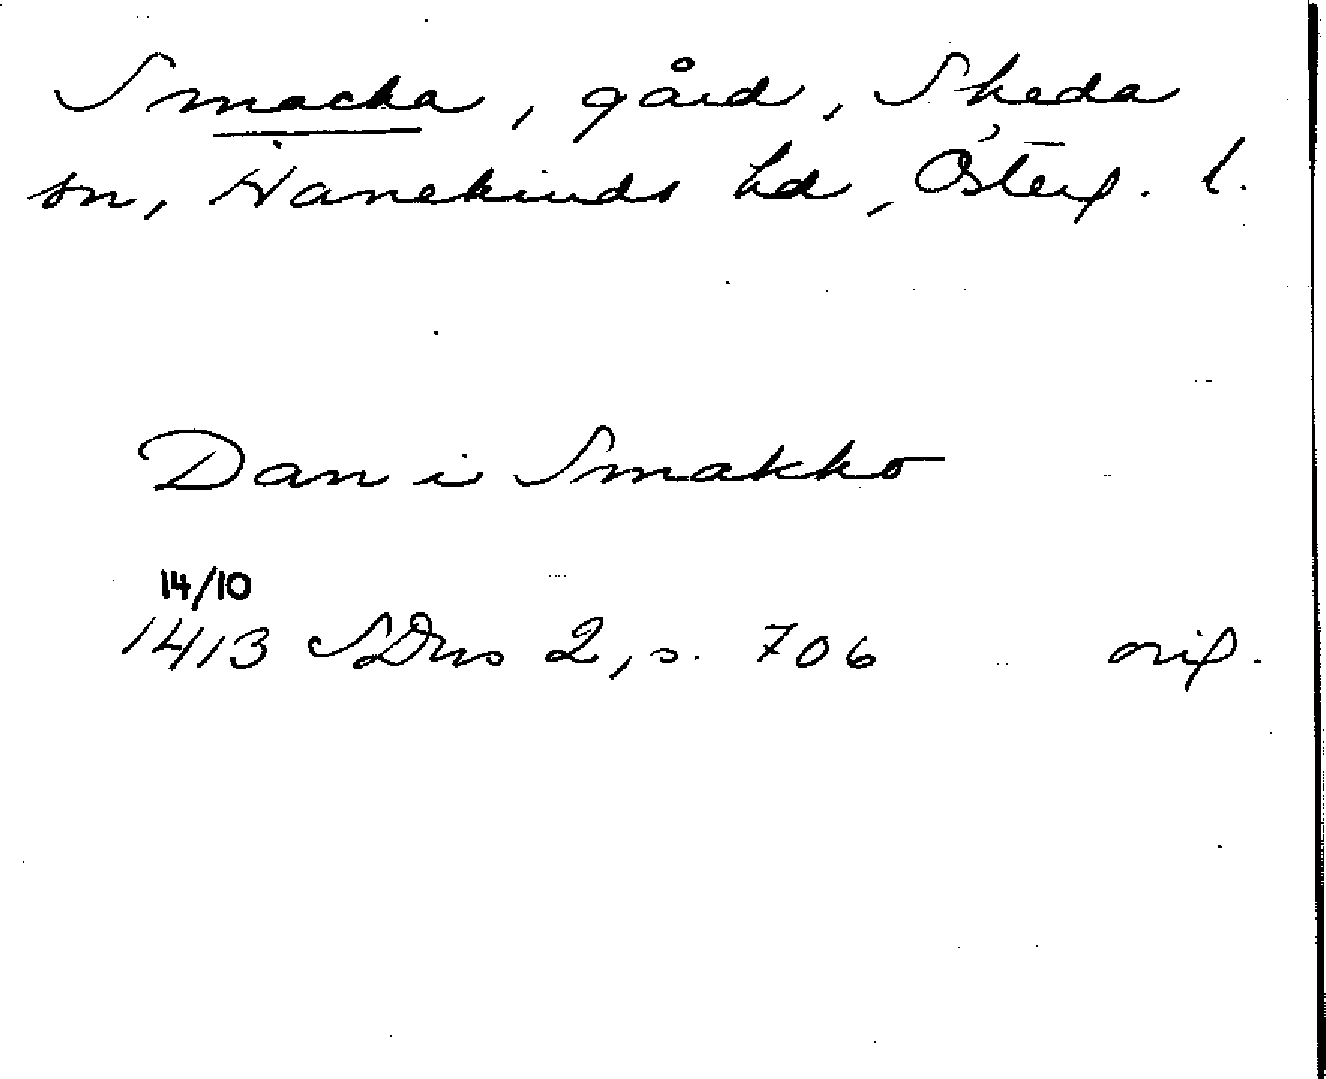 Smacka, gård, Skeda
sn, Hanekinds hd, Österg. l.
Dan i Smakko
14/10
1413 SDns 2, s. 706 orig.